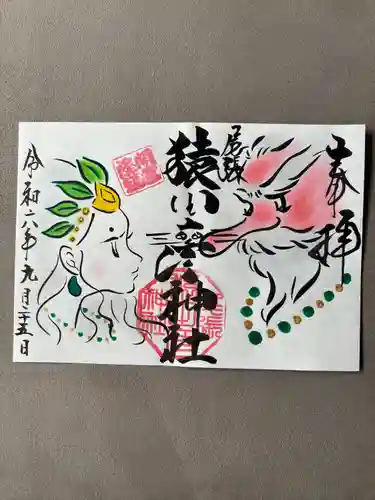 奉拝
尾張
猿田彦神社
令和六年九月二十五日